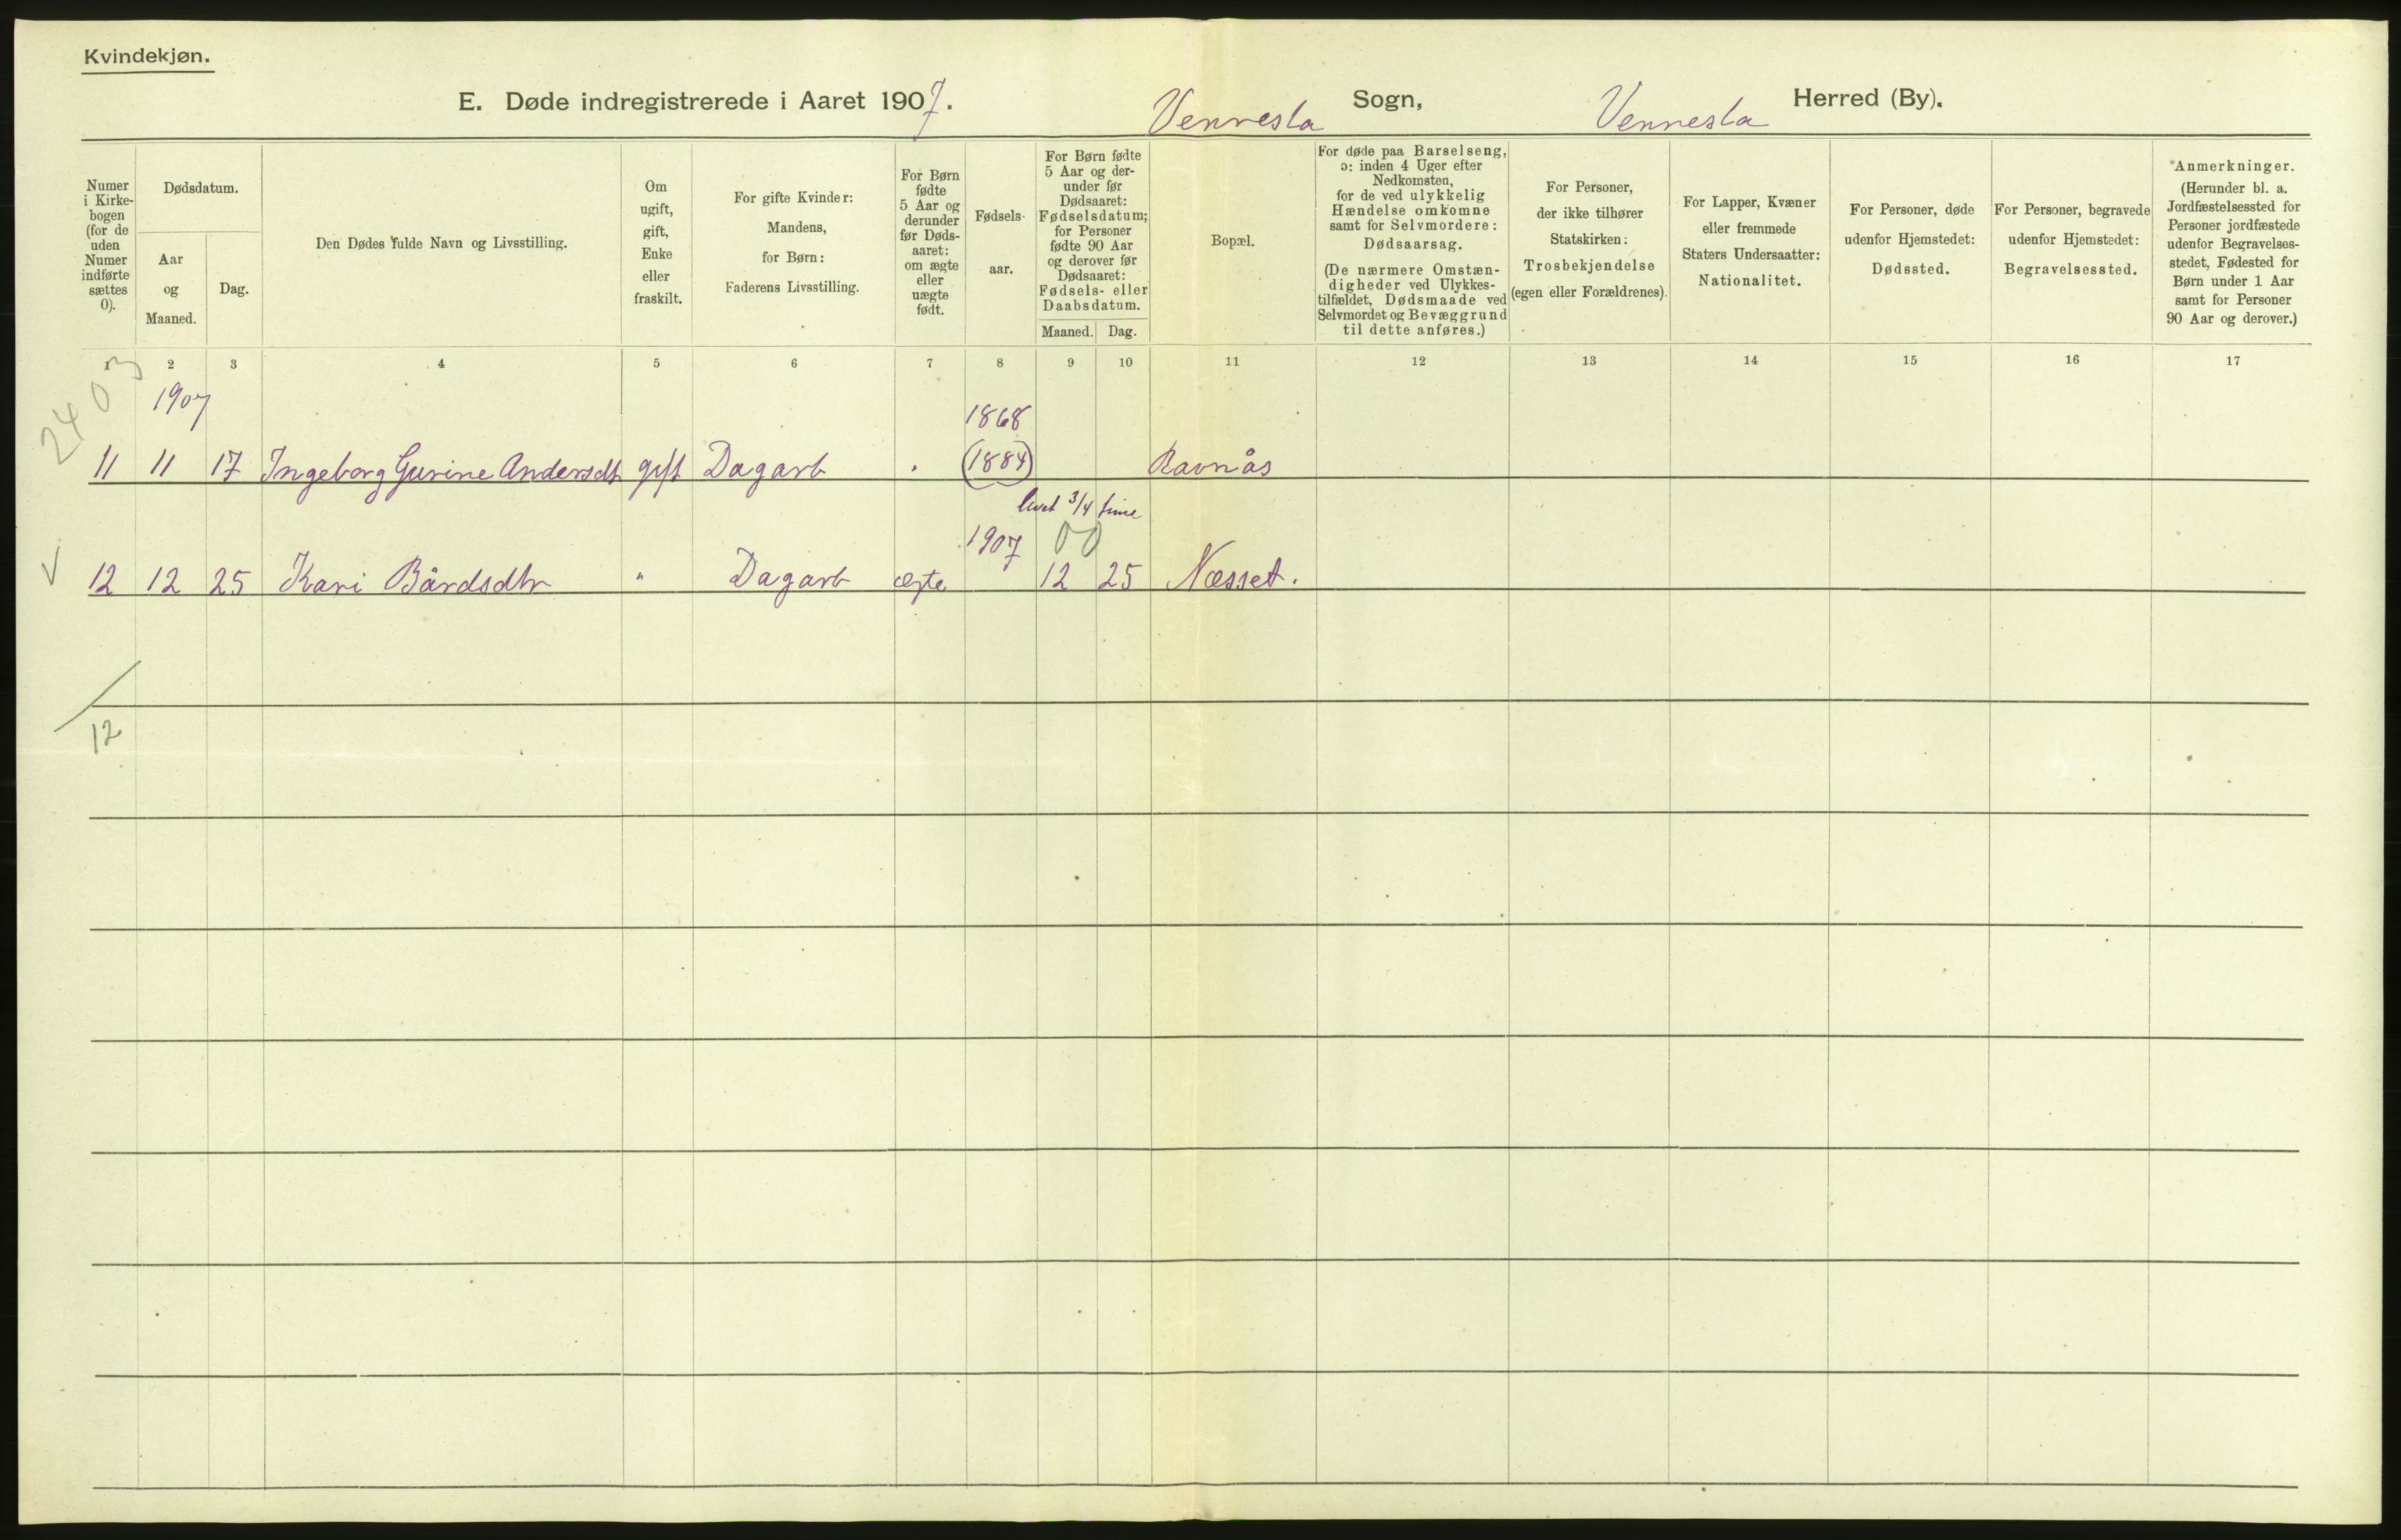 Kvindekjøn.
E. Døde indregistrerede i Aaret 1907. Vennesla Sogn, Vennesla Herred (By).
Numer
i Kirke-
bogen
(for de
uden
Numer
indførte
sættes
0).
Dødsdatum.
Aar
og
Maaned.
Dag.
Den Dødes fulde Navn og Livsstilling.
Om
ugift,
gift,
Enke
eller
fraskilt.
For gifte Kvinder:
Mandens,
for Børn:
Faderens Livsstilling.
For Børn
fødte
5 Aar og
derunder
før Døds-
aaret:
om ægte
eller
uægte
født.
Fødsels-
aar.
For Børn fødte
5 Aar og der-
under før
Dødsaaret:
Fødselsdatum;
for Personer
fødte 90 Aar
og derover før
Dødsaaret:
Fødsels- eller
Daabsdatum.
Maaned. Dag.
Bopæl.
For døde paa Barselseng,
ɔ: inden 4 Uger efter
Nedkomsten,
for de ved ulykkelig
Hændelse omkomne
samt for Selvmordere:
Dødsaarsag.
(De nærmere Omstæn-
digheder ved Ulykkes-
tilfældet, Dødsmaade ved
Selvmordet og Bevæggrund
til dette anføres.)
For Personer,
der ikke tilhører
Statskirken:
Trosbekjendelse
(egen eller Forældrenes).
For Lapper, Kvæner
eller fremmede
Staters Undersaatter:
Nationalitet.
For Personer, døde
udenfor Hjemstedet:
Dødssted.
For Personer, begravede
udenfor Hjemstedet:
Begravelsessted.
Anmerkninger.
(Herunder bl. a.
Jordfæstelsessted for
Personer jordfæstede
udenfor Begravelses-
stedet, Fødested for
Børn under 1 Aar
samt for Personer
90 Aar og derover.)
1 2 3 4 5 6 7 8 9 10 11 12 13 14 15 16 17
240
1907
1868
11 11 17 Ingeborg Gurine Andersdt gift Dagarb (1884) Ravnås
levet 3/4 time
1907 00
12 12 25 Kari Bårdsdtr " Dagarb ægte 12 25 Næsset.
12